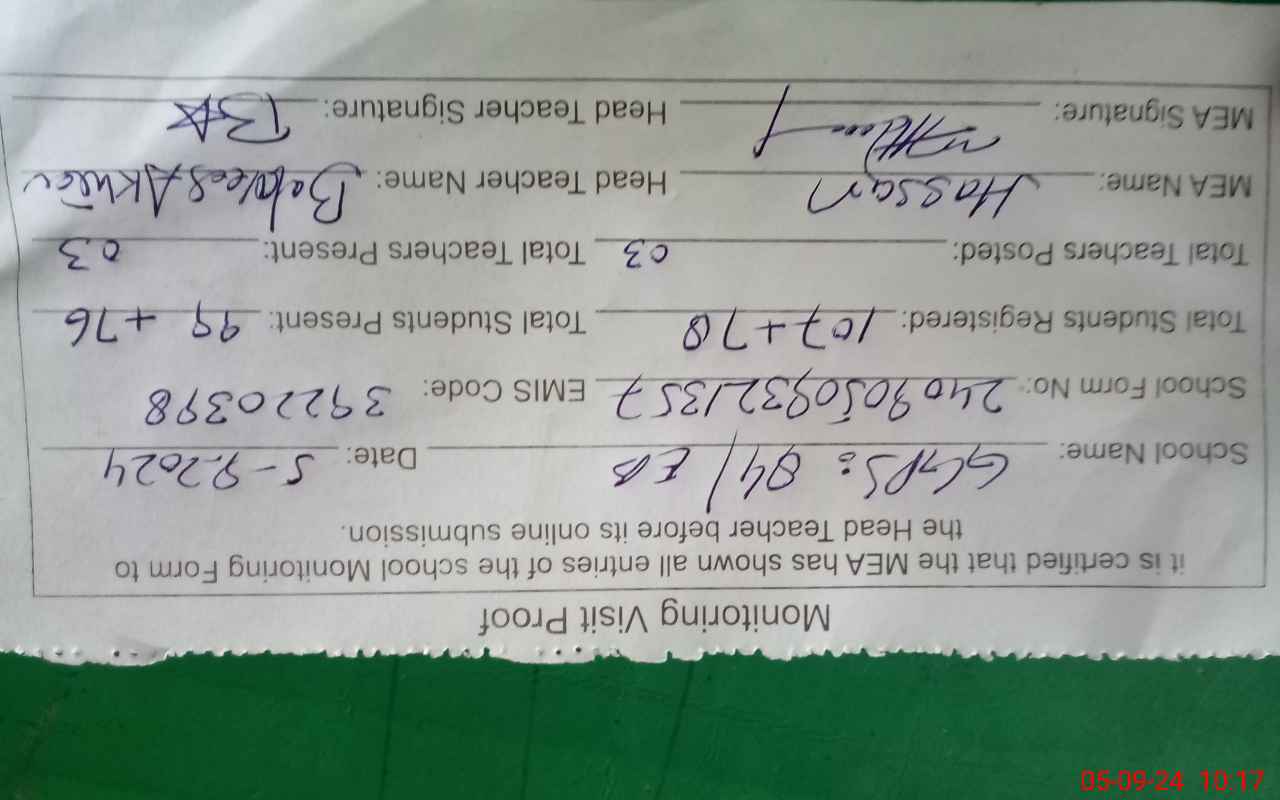 Monitoring Visit Proof
it is certified that the MEA has shown all entries of the school Monitoring Form to
the Head Teacher before its online submission.
School Name: GGPS: 84/EB Date: 5-9.2024
School Form No: 24090509321357 EMIS Code: 39220398
Total Students Registered: 107+78 Total Students Present: 99 +76
Total Teachers Posted: 03 Total Teachers Present: 03
MEA Name: Hassan Head Teacher Name: Akhtar
MEA Signature: Head Teacher Signature:
05-09-24 10:17